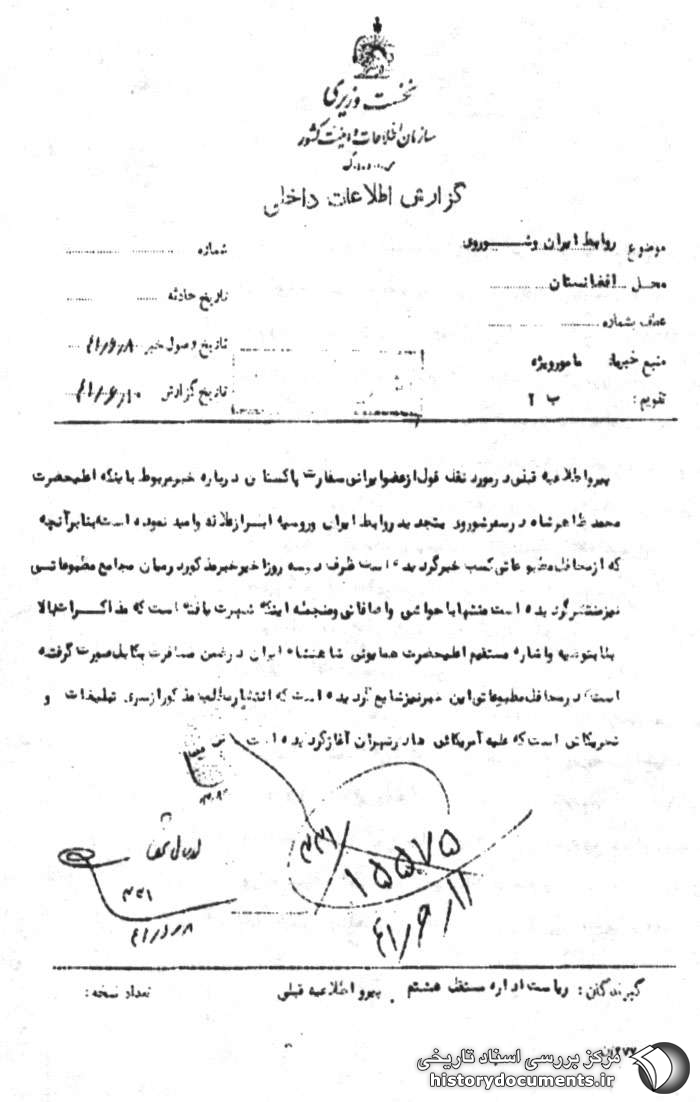 نخست وزیری
سازمان اطلاعات و امنیت کشور
گزارش اطلاعات داخلی
موضوع روابط ایران وشوروی
شماره
محل افغانستان
تاریخ حادثه
عطف بشماره
تاریخ وصول خبر ۴۱/۶/۸
منبع خبر مامورویژه
تاریخ گزارش ۴۱/۶/۱۰
تقویم : ب ۲
پیرو اطلاعیه قبلی در مورد نقل قول از عضو ایرانی سفارت پاکستان درباره خبر مربوط باینکه اعلیحضرت
محمد ظاهر شاه در سفر شوروی بتجدید روابط ایران وروسیه ابراز علاقه وامید نموده است بنابر آنچه
که از محافل مطبوعاتی کسب خبر گردیده است ظرف دو سه روز اخیر خبر مذکور در میان مجامع مطبوعاتی
نیز منتشر گردیده است منتها با حواشی واضافاتی ومنجمله اینکه شهرت یافته است که مذاکرات بالا
بنا بتوصیه واشاره مستقیم اعلیحضرت همایونی شاهنشاه ایران در ضمن مسافرت بکابل صورت گرفته
است در محافل مطبوعاتی این خبر نیز شایع گردیده است که انتشار مطالب مذکور از سری تبلیغات و
تحریکاتی است که علیه آمریکائی ها در تهران آغاز گردیده است
۳۳۱
۱۵۵۷۵
۴۱/۶/۱۱
۳۳۱
گیرندگان : ریاست اداره مستقل هشتم پیرو اطلاعیه قبلی
تعداد نسخه :
مرکز بررسی اسناد تاریخی
historydocuments.ir